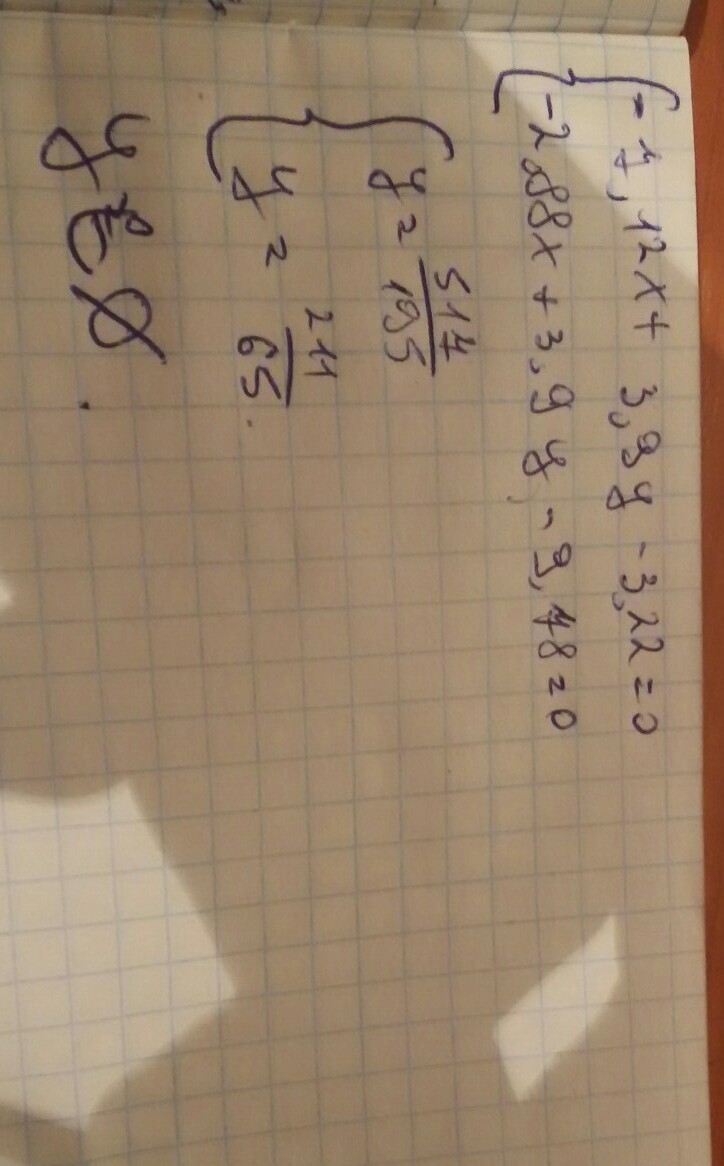 { -7,12x + 3,9y - 3,22 = 0
{ -2,88x + 3,9y - 9,78 = 0
{ y = 517/195
{ y = 211/65.
y ∈ ∅.